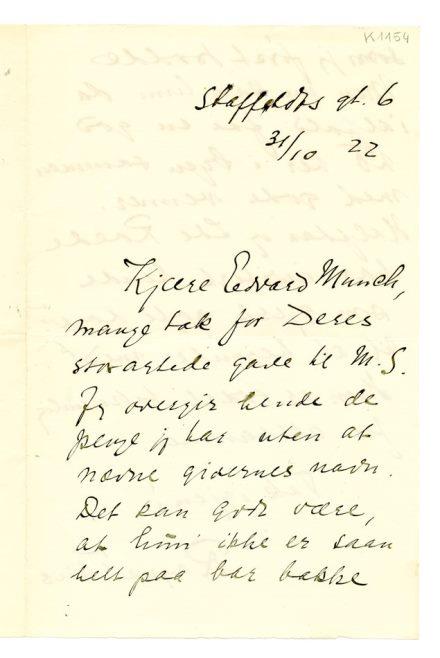 K1154
Staffeldts gt. 6
31/10 22
Kjære Edvard Munch,
mange tak for Deres
storartede gave til M. S.
Jeg overgir hende de
penge jeg har uten at
nævne givernes navn.
Det kan godt være,
at hun ikke er saan
helt paa bar bakke